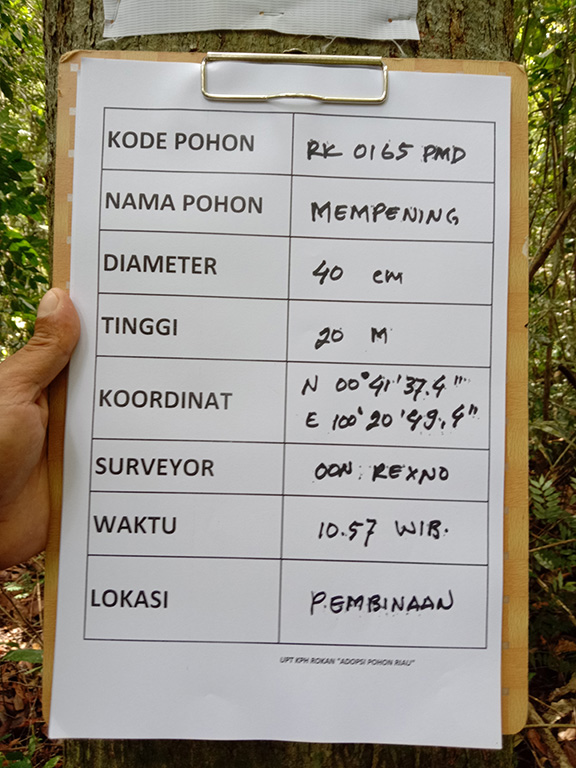 KODE POHON RK 0165 PMD
NAMA POHON MEMPENING
DIAMETER 40 cm
TINGGI 20 M
KOORDINAT N 00°41'37.4"
E 100°20'49.4"
SURVEYOR OON. REXNO
WAKTU 10.57 WIB.
LOKASI PEMBINAAN
UPT KPH ROKAN "ADOPSI POHON RIAU"